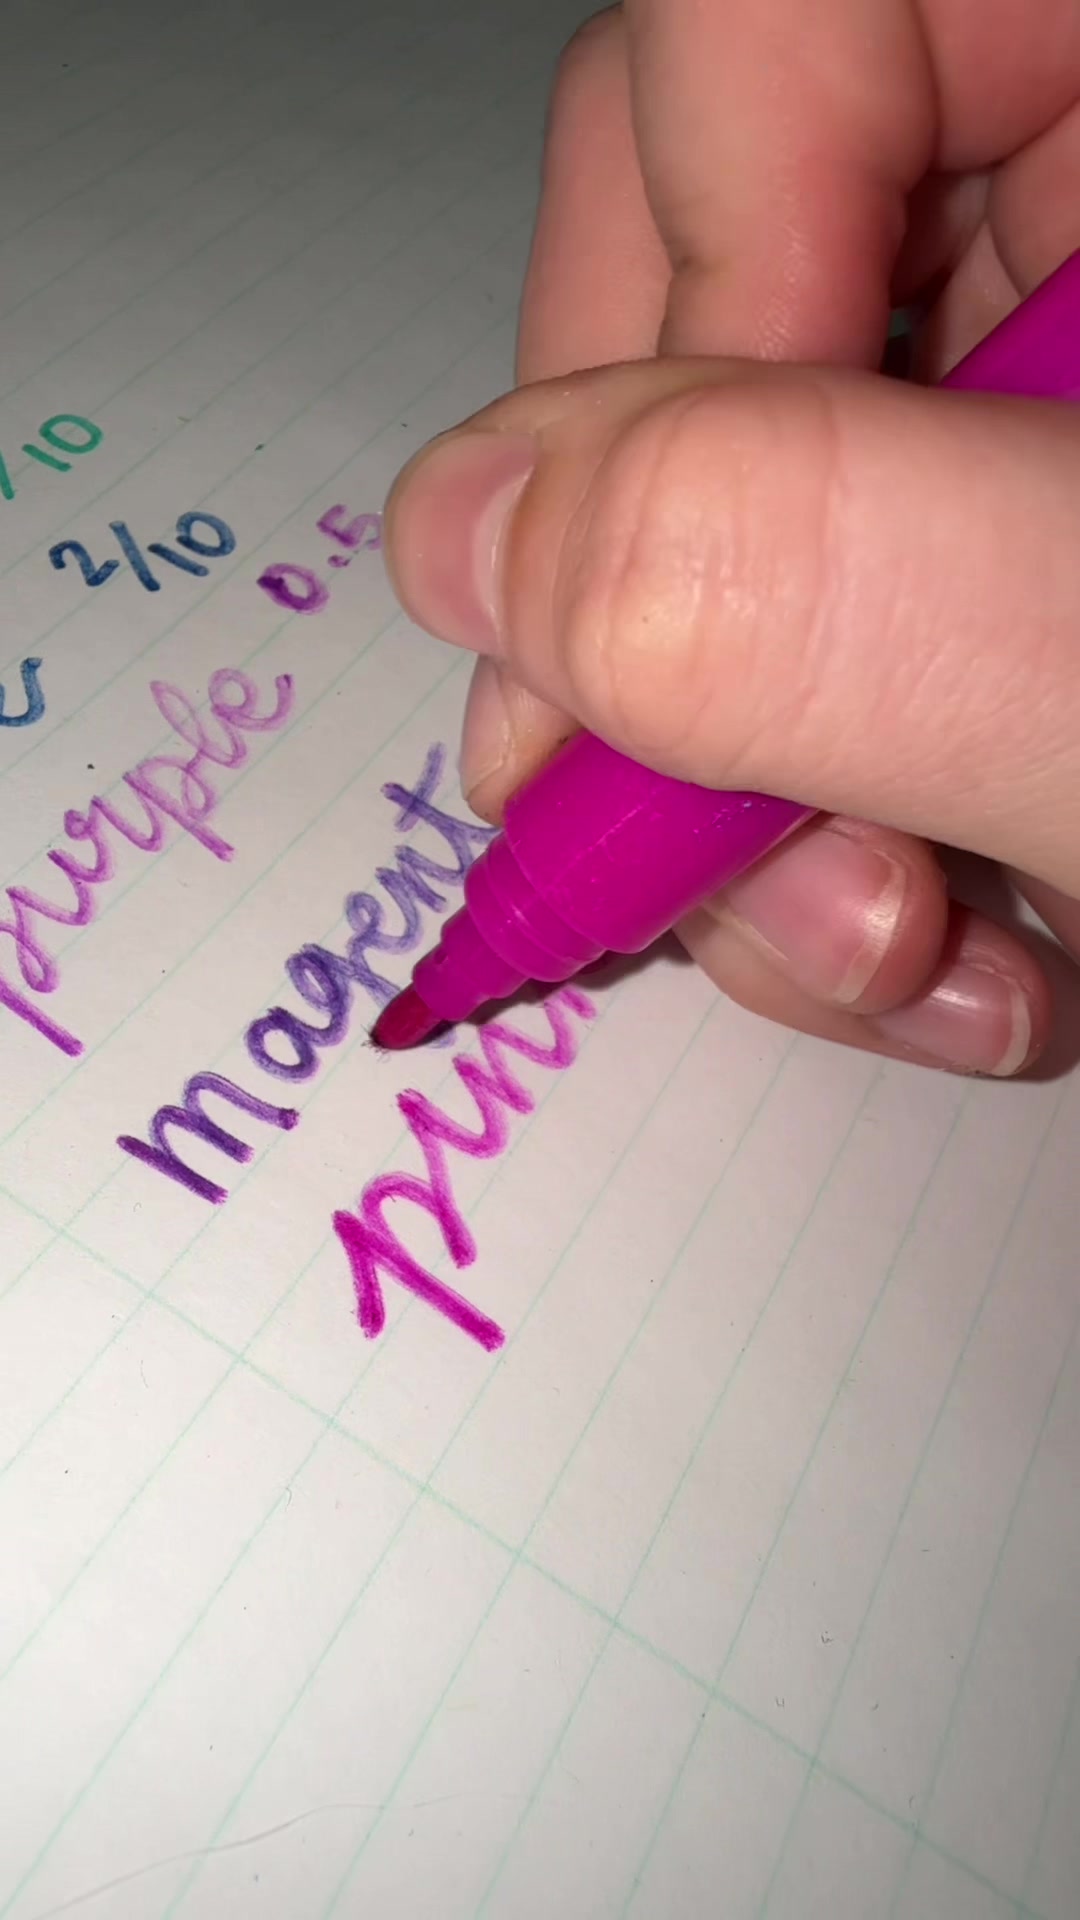 /10
2/10
purple 0.5
magent
pin